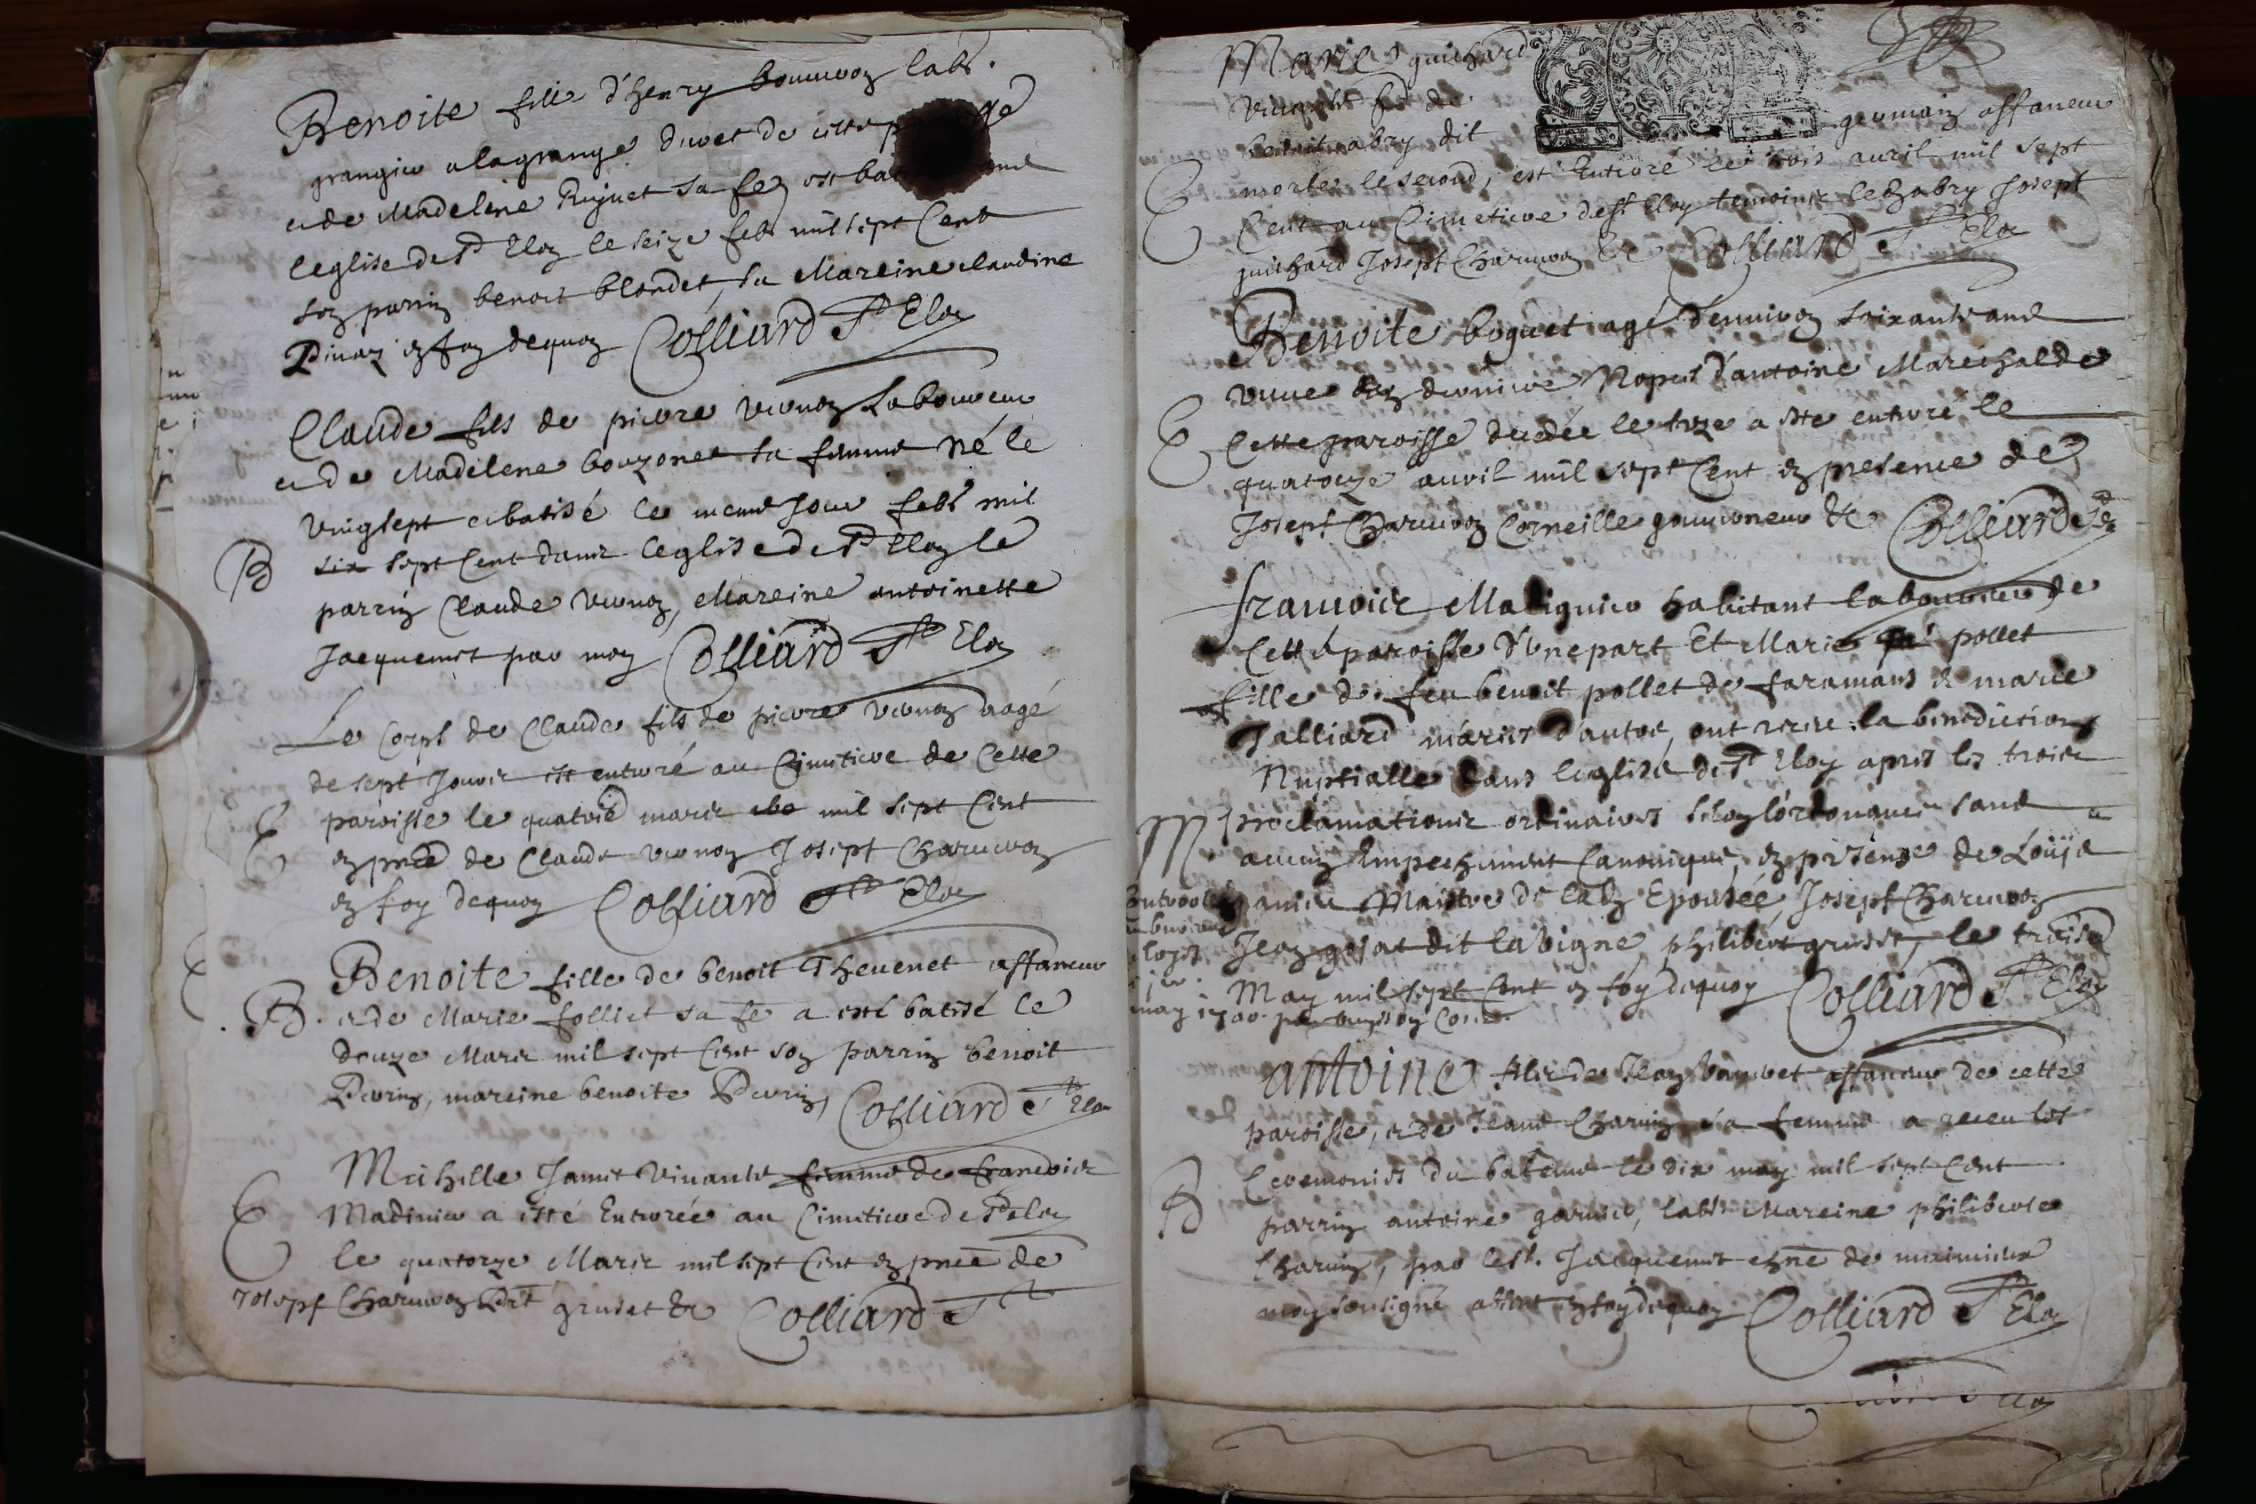 Benoite fille d'henry bouvvoy labr.
grangier a lagrange du de cette
et de Madeleine Riguet sa fe est
leglise de St Eloy le seize febr mil sept Cent
soy parriy benoit blondet, sa Mareine claudine
ey foy dequoy Colliard St Eloy
Claude fils de pierre vernoy Laboureur
et de Madelene bouzonet sa femme Né le
vingsept et batisé le meme Jour febr mil
six sept Cent dans leglise de St Eloy le
parriy Claude vernoy, Mareine antoinette
Jacquemet par moy Colliard St Eloy
B
Le Corps de Claude fils de pierre vernoy aagé
de sept Jours est enterré au Cimetiere de Cette
paroisse le quatrie mars mil sept Cent
ey pnce de Claude vernoy Josept Charvvoy
ey foy dequoy Colliard St Eloy
E
Benoite fille de benoit Thevenet affaneur
B. et de Marie folliet sa fe a esté batisé le
douze Mars mil sept Cent soy parriy benoit
Perriy, mareine benoite Perriy, Colliard St Eloy
Michelle Jamet vivante femme de francois
E Madinier a esté Enterrée au Cimetiere de St eloy
le quatorze Mars mil sept Cent ey pnce de
Josepf Charvvoy grusat &c Colliard St
Marie guichard
vivante fe de
benoit abry dit germaiy affaneur
E morte le second, est Enterré le trois avril mil sept
Cent au Cimetiere de St Eloy temoins led abry Josept
guichard Josept Charvvoy &c Colliard St Eloy
Benoite boguet agé d'enviroy soixante ans
veuve derniere Nopces d'antoine Marechal de
E Cette paroisse decedée le treze a ste enterré le
quatorze avril mil sept Cent ey presence de
Josepf Charvvoy Corneille gouverneur &c Colliard St
francois Matignier habitant laboureur de
Cette paroisse d'une part Et Marie pollet
fille de feu benoit pollet de faramans et marie
Jalliard mariés d'autre, ont receu la benediction
Nuptialle dans leglise de St Eloy apres les trois
M proclamations ordinaires seloy lordonnance sans
aucuy Empechement Canonique, ey présence de Loüis
Maistre de lad Epousée, Josepf Charvvoy
Jeay gojat dit lavigne, philibert grusat, le troisie
May mil sept Cent ey foy dequoy Colliard St Eloy
may 1700
antoine fils de Jeay bauvet affaneur de cette
paroisse, et de Jeane Charviy sa femme a receu les
Ceremonies du bateme le dix may mil sept Cent
B parriy antoine garnier, labr Mareine philiberte
Charviy, par le Sr. Jacquemet chne de meximieux
moy sousigné absent ey foy dequoy Colliard St Eloy